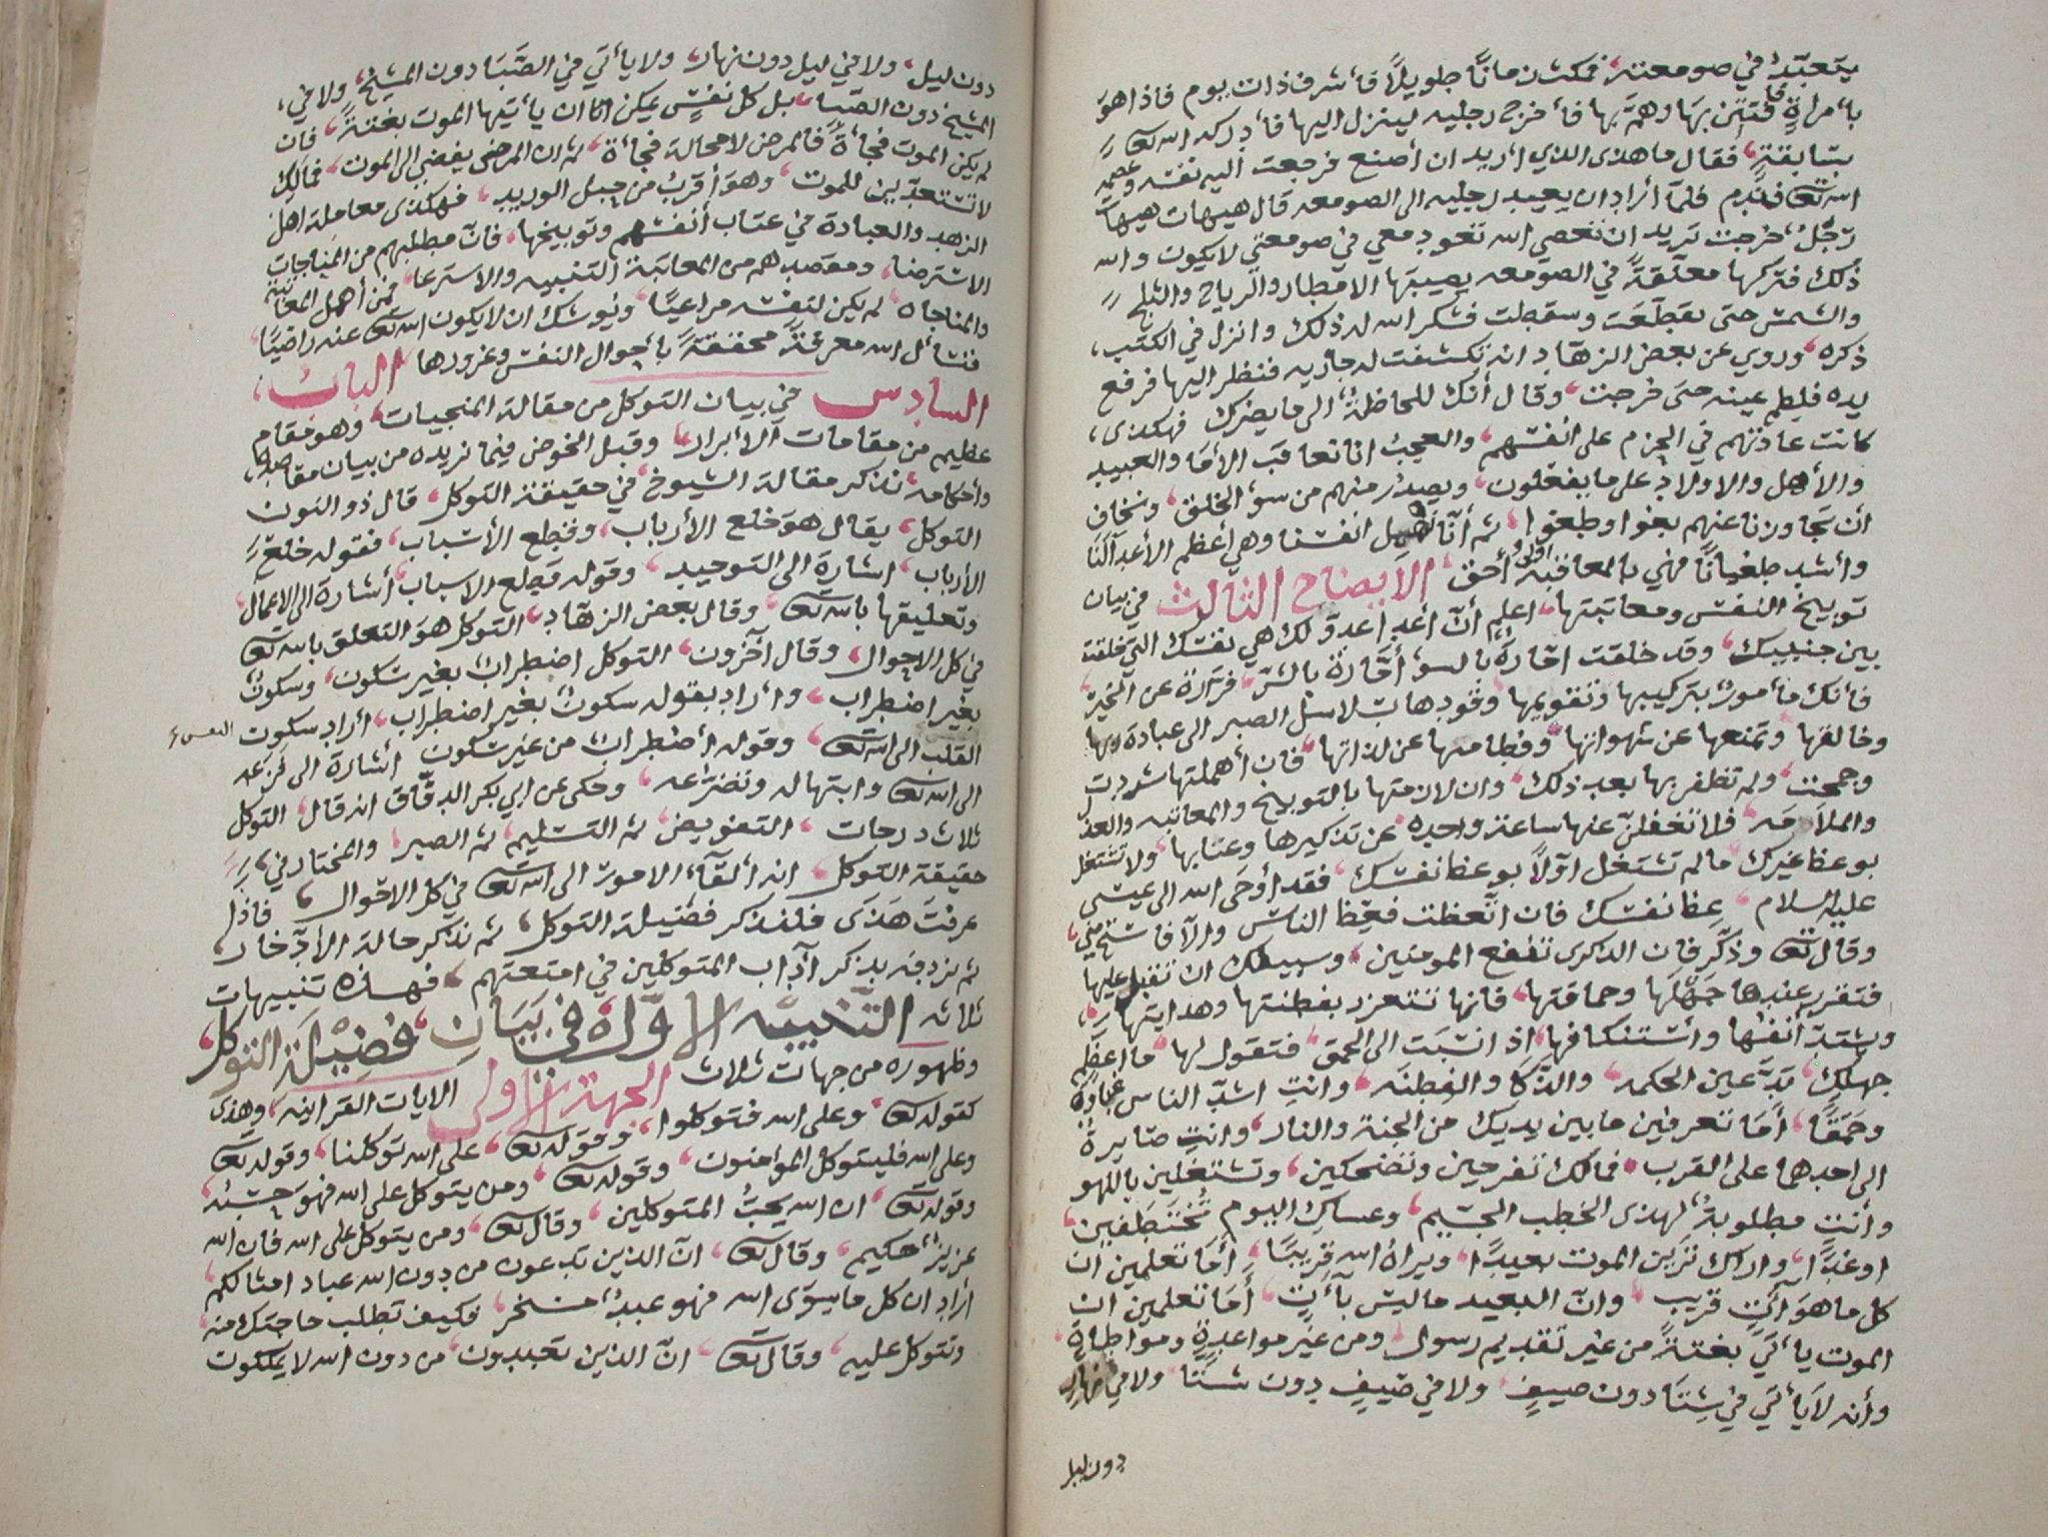 يتعبّد في صومعته فمكث زمانًا طويلًا فأشرف ذات يوم فاذا هو
بأمراةٍ فافتتن بها وهمّ بها فأخرج رجليه لينزل اليها فأدركه الله تعالى
بسابقةٍ فقال ما هذى الذي أريد ان أصنع فرجعت اليه نفسه وعصمه
الله تعالى فندم فلمّا أراد ان يعيد رجليه الى الصومعه قال هيهات هيهات
رجلٌ خرجت تريد ان تعصي الله تعود معي في صومعتي لايكون والله
ذلك فتركها معلّقةً في الصومعه يصيبها الامطار والرياح والثلج
والشمس حتى تقطّعت وسقطت فشكر الله له ذلك وانزل في الكتب
ذكره وروي عن بعض الزهاد انه تكشفت له جاريه فنظر اليها فرفع
يده فلطم عينه حتى خرجت وقال أنك للحاظةٌ الى ما يضرك فهكذى
كانت عادتهم في الجزم على انفسهم والعجبُ انا نعاقب الأمَا والعبيد
والأهل والاولاد على ما يفعلون ويصدر منهم من سوء الخلق ونخاف
أن تجاوزنا عنهم بغوا وطغوا ثم أنّا نهمل انفسنا وهي أعظم الأعدآلنَا
وأشد طغيانًا فهي بالمعاقبة اولى وأحق الأيضاح الثالث في بيان
توبيخ النفس ومعاتبتها اعلم أنّ أعدا عدوّ لك هي نفسك التي خلقت
بين جنبيك وقد خلقت امّارةً بالسوء أمّارة بالشرّ فرّارة عن الخير
فأنك مأمورٌ بتركيبها وتقويمها وقودها بسلاسل الصبر الى عبادة ربها
وخالقها وتمنعها عن شهواتها وفطامها عن لذاتها فان أهملتها شردت
وجمحت ولم تظفر بها بعد ذلك وان لازمتها بالتوبيخ والمعاتبه والعذل
والملامه فلا تغفلنّ عنها ساعة واحده عن تذكيرها وعتابها ولا تشتغل
بوعظ غيرك مالم تشتغل اوّلاً بوعظ نفسك فقد أوحَى الله الى عيسى
عليه السلام عِظ نفسك فان اتّعظت فعِظ الناس والّا فاستحي مني
وقال تعالى وذكّر فان الذكرى تنفع المومنين وسبيلك ان تقبل عليها
فتقرر عندها جَهْلَها وحماقتها فانها تتعزز بفطنتها وهدايتها
ويشتدّ أنفها وأستنكافها اذ انسبَت الى الحمق فتقول لها ما اعظَم
جهلكِ تدّعين الحكمه والذّكا والفِطنَه وانتِ اشدّ الناس غباوةً
وحمَقًا أمَا تعرفين ما بين يديك من الجنة والنار وانتِ صايرةٌ
الى احدهما على القرب فمالك تفرحين وتضحكين وتشتغلين باللهو
وأنتِ مطلوبةٌ لهذى الخطب الجسيم وعساكِ اليوم تُختَطَفين
اوغدًا واراك تَرَين الموت بعيدًا ويراهُ الله قريبًا أمَا تعلمين ان
كل ما هوَ آتٍ قريب وانّ البعيد ماليس بآتٍ أمَا تعلمين ان
الموت يأتي بغتةً من غير تقديم رسول ومن غير مواعدةٍ ومواطأةٍ
وأنه لايأتي في شِتَا دون صيفٍ ولا في صيفٍ دون شتَا ولا في نهار
دون ليل
دون ليل ولا في ليل دون نهار ولا يأتي في الصّبَا دون المشيخ ولا في
المشيخ دون الصّبا بل كل نفسٍ يمكن امّا ان يأتيها الموت بغتةً فان
لم يكن الموت فجأةً فالمرض لامحالة فجأة ثم ان المرض يفضي الى الموت فمالكِ
لا تستعدّين للموت وهو أقربُ من حبل الوريد فهكذى معاملة اهل
الزهد والعبادة في عتاب أنفسهم وتوبيخها فانّ مطلبهم من المناجات
الاسترضا ومقصدهم من المعاتبة التنبيه والاسترعا فمن أهمل المعاتبة
والمناجاه لم يكن لنفسه مراعيًا ويوشك ان لايكون الله تعالى عنه راضيًا
فنسأل الله معرفةً محققةً بأحوال النفس وغرورها البابُ
السادس في بيان التوكل من مقالة المنجيات وهو مقام
عظيم من مقامات الأبرار وقبل الخوض فيما نريده من بيان مقاصده
وأحكامه نذكر مقالة الشيوخ في حقيقة التوكل قال ذو النون
التوكل يقال هو خلع الأرباب وقطع الأسباب فقوله خلعَ
الأرباب اشارة الى التوحيد وقوله قطع الاسباب أشارة الى الأعمال
وتعليقها بالله تعالى وقال بعض الزهاد التوكل هو التعلق بالله تعالى
في كل الاحوال وقال آخرون التوكل اضطرابٌ بغير سكون وسكونٌ
بغير اضطراب وأراد بقوله سكونٌ بغير اضطراب أراد سكون النفس و
القلب الى الله تعالى وقوله أضطرابٌ من غير سكون أشارة الى فزعه
الى الله تعالى وابتهاله وتضرّعه وحكى عن ابي بكر الدقّاق انه قال التوكل
ثلاث درجات التفويض ثم التسليم ثم الصبر والمختار في
حقيقة التوكل انه ألقآء الامور الى الله تعالى في كل الاحوال فاذا
عرفتَ هَذى فلنذكر فضيلة التوكل ثم نذكر حالة الأدّخار
ثم نردفه بذكر آدآب المتوكلين في امتعتهم فهذه تنبيهات
ثلاثه التّنبيه الأوّل في بَيَانِ فضِيْلَة التوكل
وظهوره من جهات ثلاث الجهة الأولى الايات القرانيه وهذى
كقوله تعالى وعلى الله فتوكلوا وقوله تعالى على الله توكلنا وقوله تعالى
وعلى الله فليتوكل المؤمنون وقوله تعالى ومن يتوكل على الله فهوَ حسْبُه
وقوله تعالى ان الله يحبُّ المتوكلين وقال تعالى ومن يتوكل على الله فان الله
عزيزٌ حكيم وقال تعالى انّ الذين تدعون من دون الله عباد امثالكم
أراد ان كل ما سِوَى الله فهو عبدٌ مسخر فكيف تطلب حاجتك منه
وتتوكل عليه وقال تعالى انّ الذين تعبدون من دون الله لا يملكون